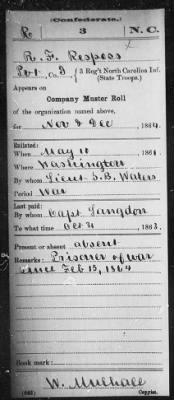 (Confederate.)
R 3 N.C.
R. F. Respess
Pvt, Co. I, 3 Reg't North Carolina Inf.
(State Troops.)
Appears on
Company Muster Roll
of the organization named above,
for Nov & Dec, 1864.
Enlisted:
When May 10, 1861.
Where Washington
By whom Lieut S.B. Waters
Period War
Last paid:
By whom Capt. Langdon
To what time Oct 31, 1863.
Present or absent absent
Remarks: Prisoner of war
since Feb 15, 1864
Book mark:
W. Mulhall
(642) Copyist.